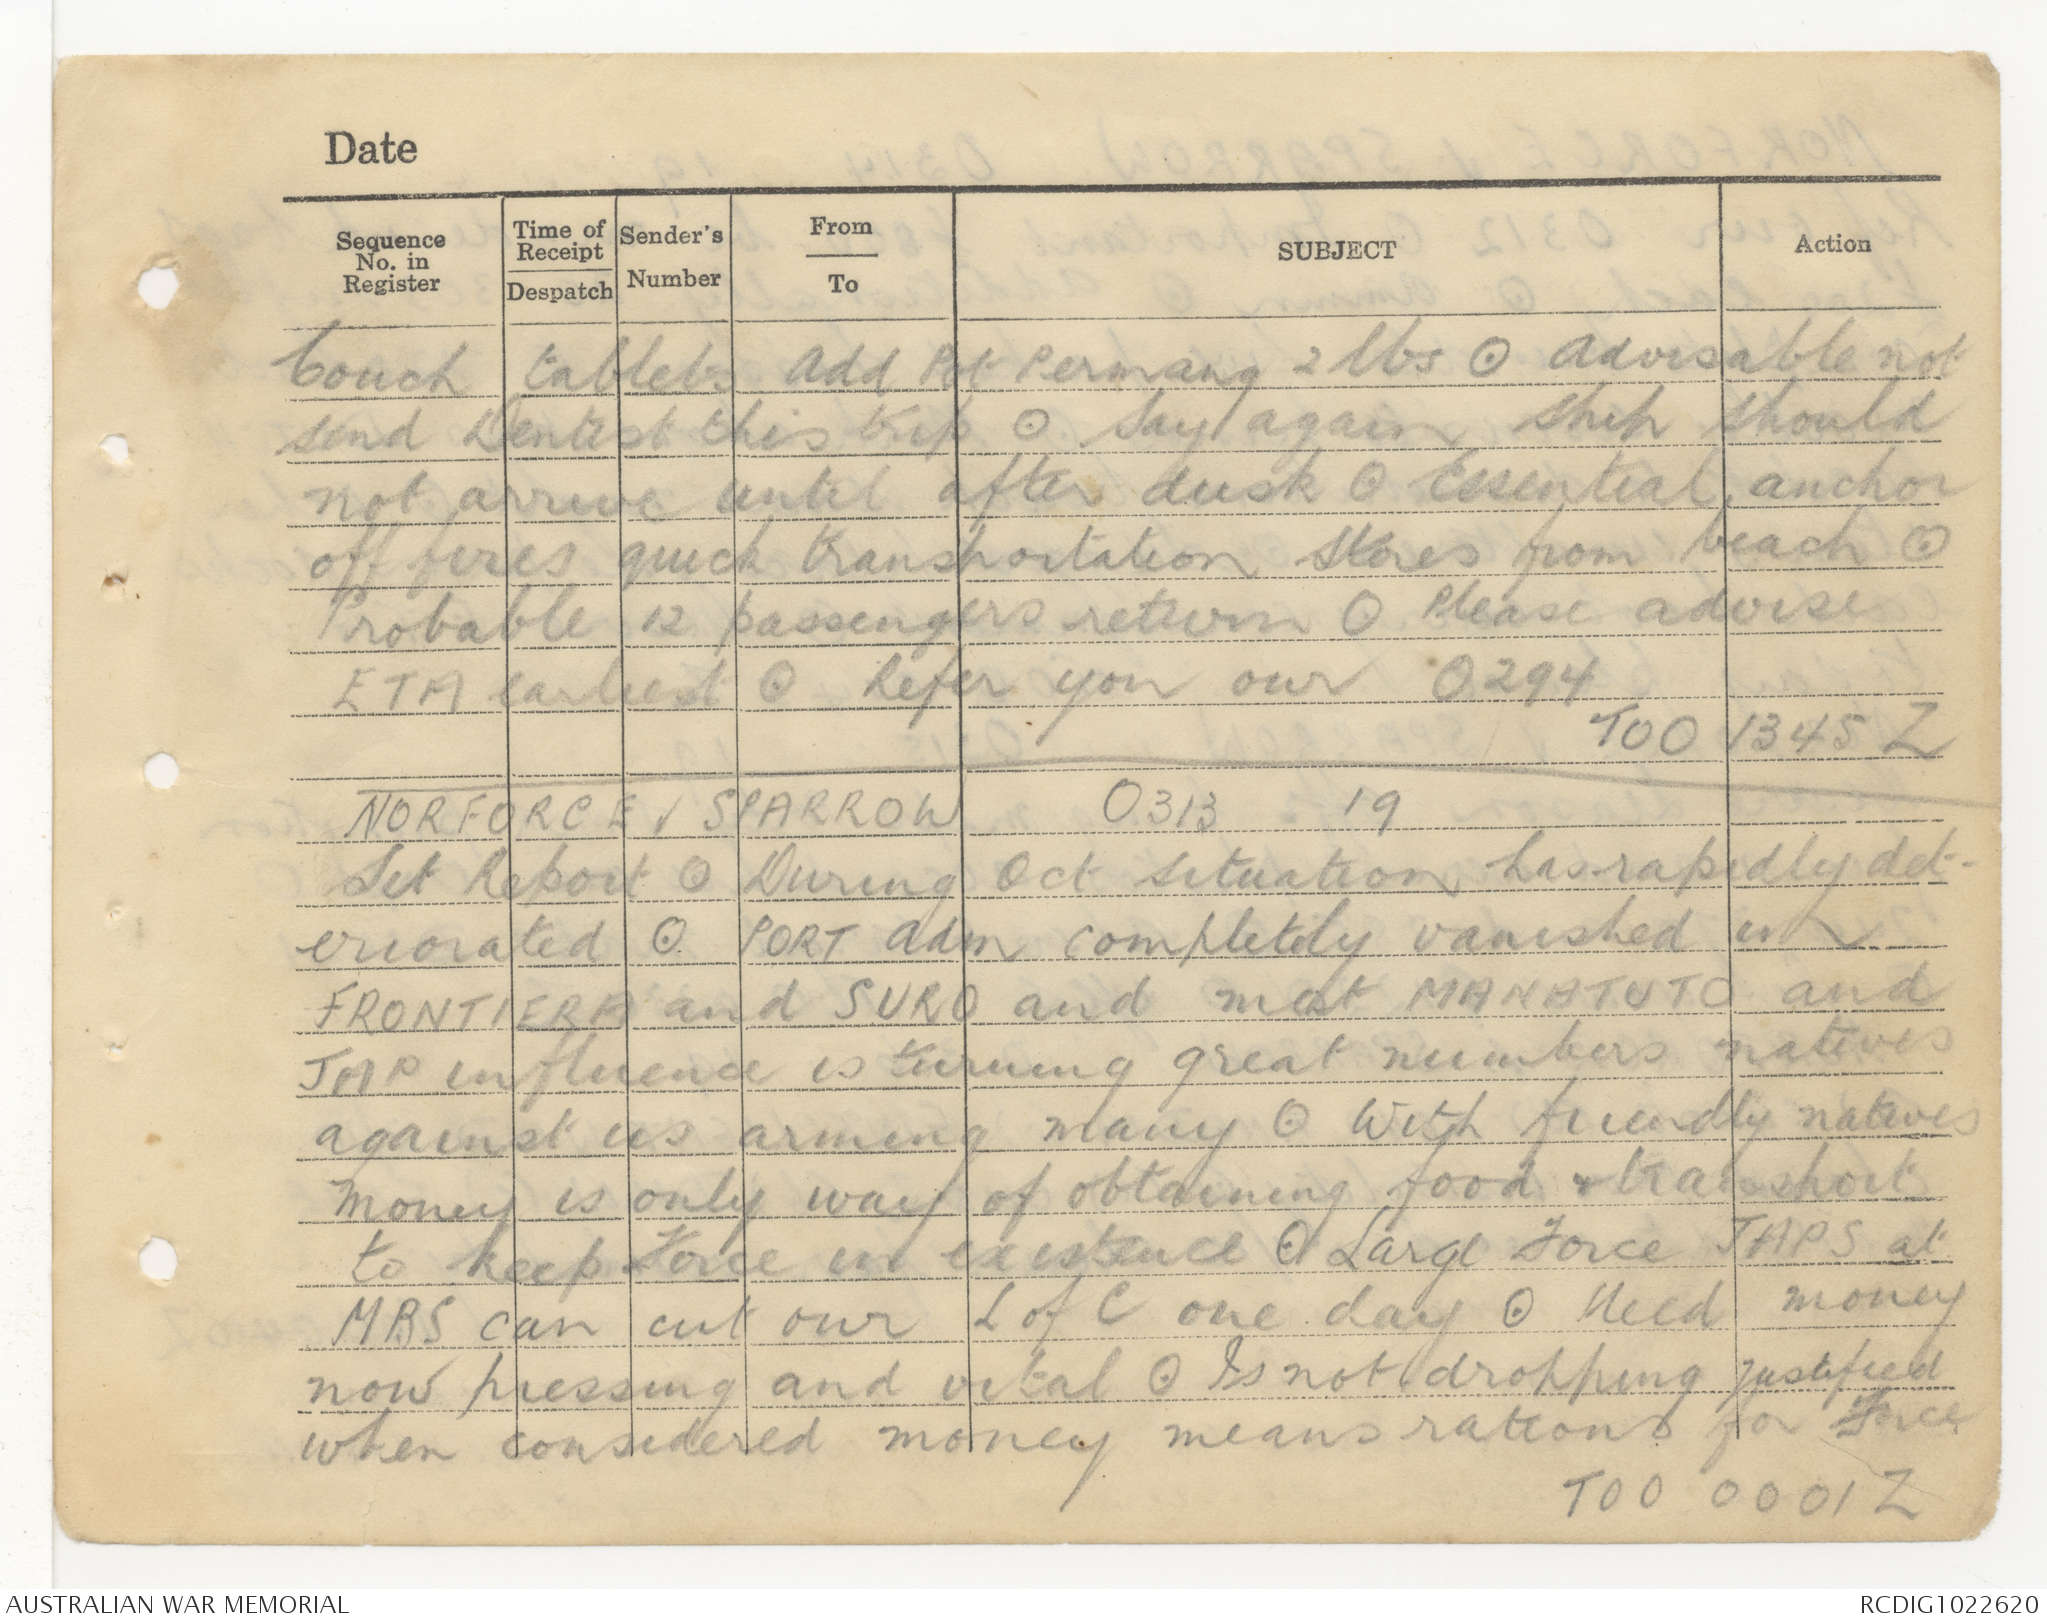 Date
Sequence No. in Register
Time of Receipt
Despatch
Sender's Number
From
To
SUBJECT
Action
Couch tablets add Pot Permang 2 lbs ⊙ Advisable not
send Dentist this trip ⊙ Say again ship should
not arrive until after dusk ⊙ Essential anchor
off fires quick transportation stores from beach ⊙
Probable 12 passengers return ⊙ Please advise
ETA earliest ⊙ Refer you our 0294
TOO 1345 Z
NORFORCE v SPARROW 0313 19
Sit Report ⊙ During Oct situation has rapidly det-
eriorated ⊙ PORT adm completely vanished in
FRONTIERA and SURO and most MANATUTO and
JAP influence is turning great numbers natives
against us arming many ⊙ With friendly natives
money is only way of obtaining food & transport
to keep Force in existence ⊙ Large Force JAPS at
MBS can cut our L of C one day ⊙ Need money
now pressing and vital ⊙ Is not dropping justified
when considered money means rations for Force
TOO 0001 Z
AUSTRALIAN WAR MEMORIAL
RCDIG1022620